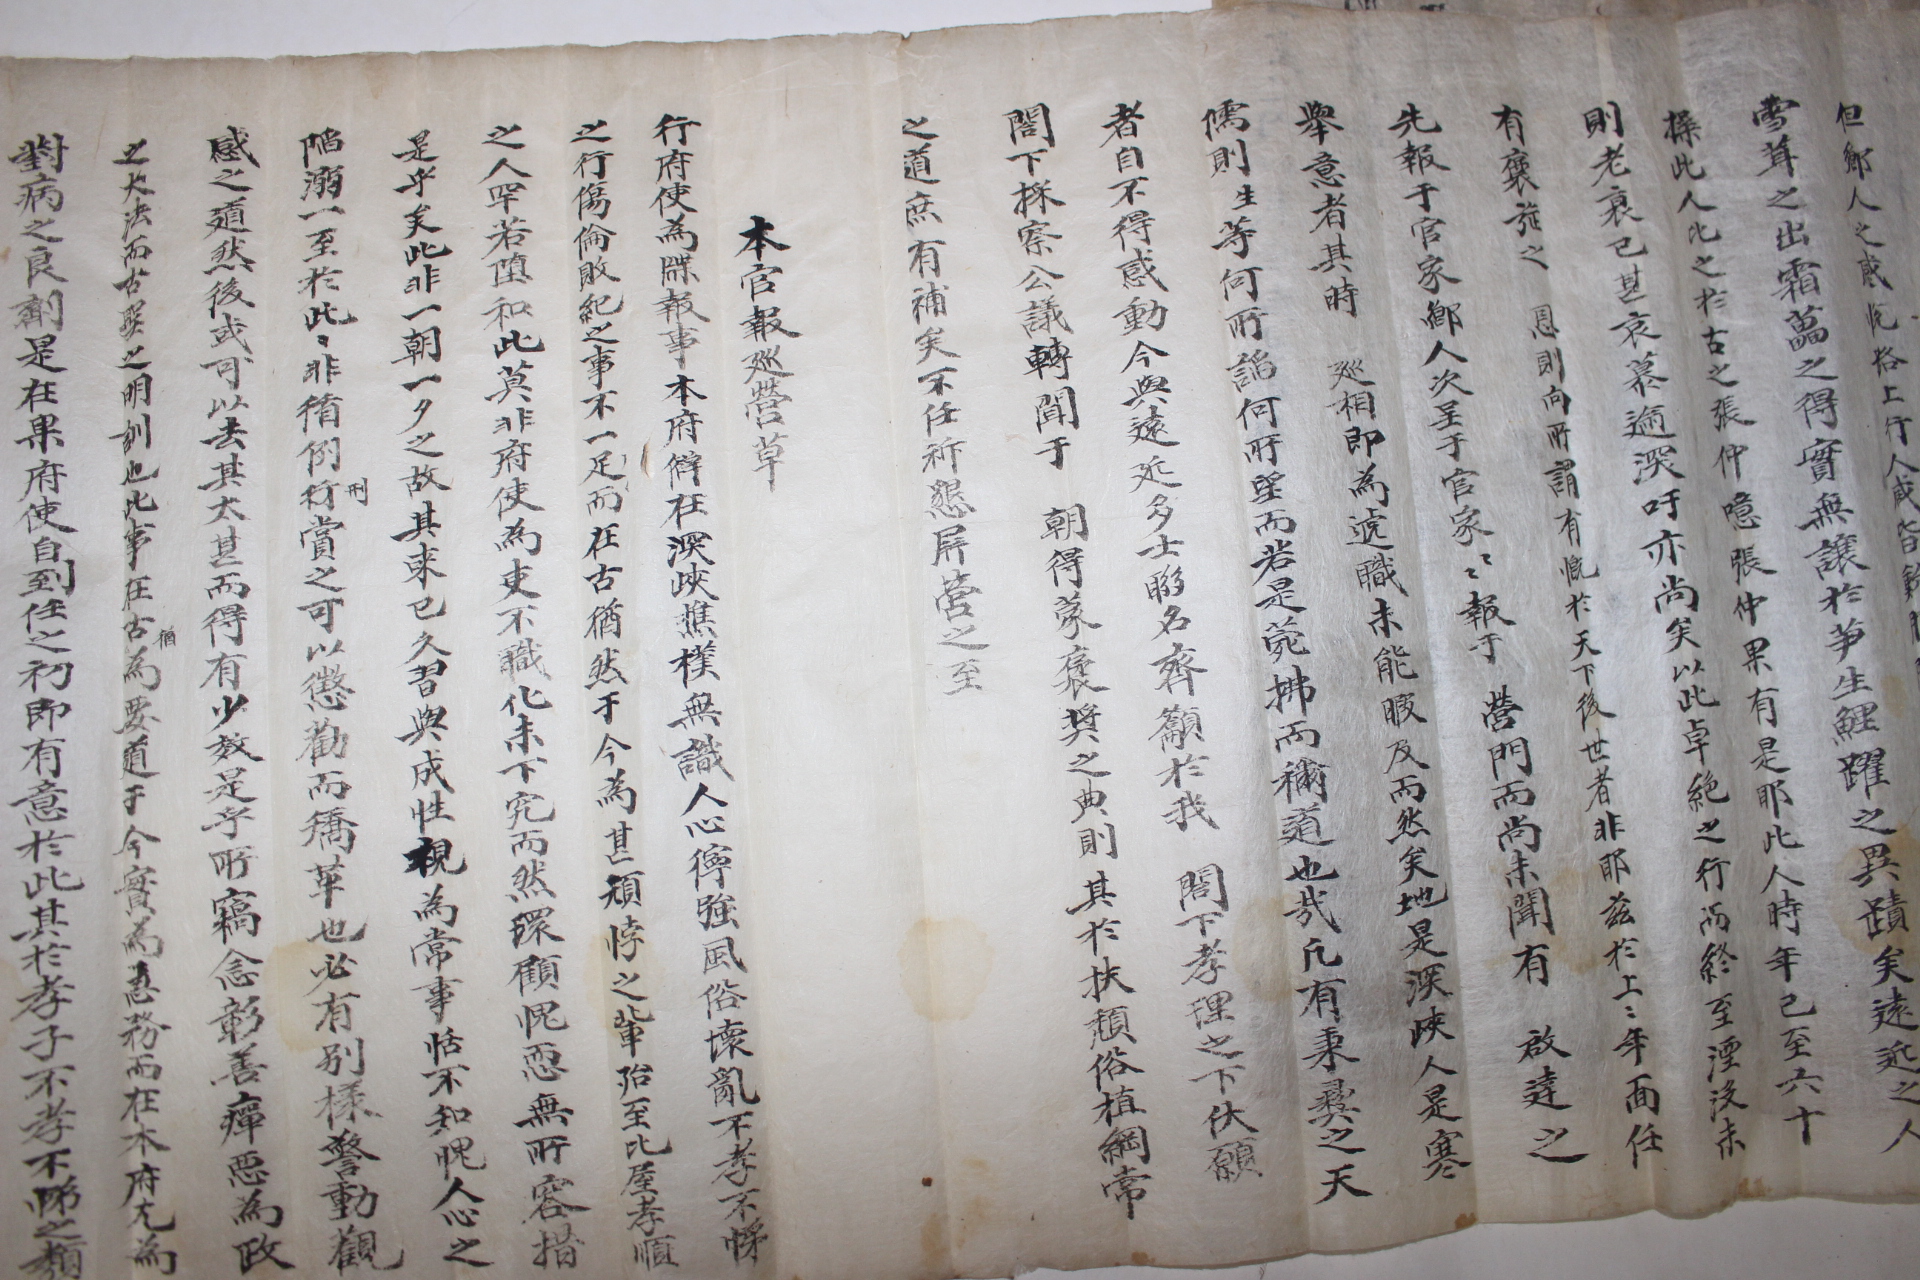 但鄕人之感化格上行人咸皆
雪茸之出霜萵之得實無讓於笋生鯉躍之異蹟矣遠近之人
操此人比之於古之張仲噫張仲果有是耶此人時年已至六十
則老衰已甚哀慕逾深吁亦尚矣以此卓絶之行而終至湮沒未
有褒旌之 恩則向所謂有慨於天下後世者非耶玆於上上年面任
先報于官家鄕人次呈于官家官家報于 營門而尚未聞有 啟達之
擧意者其時 巡相即爲遞職未能暇及而然矣地是深峽人是寒
儒則生等何所謟何所望而若是蔸拂而稱道也哉凡有秉彛之天
者自不得感動今與遠近多士聯名齊籲於我 閤下孝理之下伏願
閤下採察公議轉聞于 朝得蒙褒奬之典則其於扶頽俗植綱常
之道庶有補矣不任祈懇屛營之至
本官報巡營草
行府使爲牒報事本府僻在深峽蕉樸無識人心獰強風俗壞亂不孝不悌
之行傷倫敗紀之事不一足而在古猶然于今爲甚頑悖之輩殆至比屋孝順
之人罕若鳯和此莫非府使爲吏不職化未下究而然環顧愧恧無所容措
是乎矣此非一朝一夕之故其來已久習與成性視爲常事恬不知愧人心之
陷溺一至於此此非循例行刑賞之可以懲勸而矯革也必有別樣警動觀
感之道然後或可以去其太甚而得有少效是乎所竊念彰善癉惡爲政
之大法而古聖之明訓也此事在古猶爲要道于今實爲急務而在本府尤爲
對病之良劑是在果府使自到任之初即有意於此其於孝子不孝不悌之類